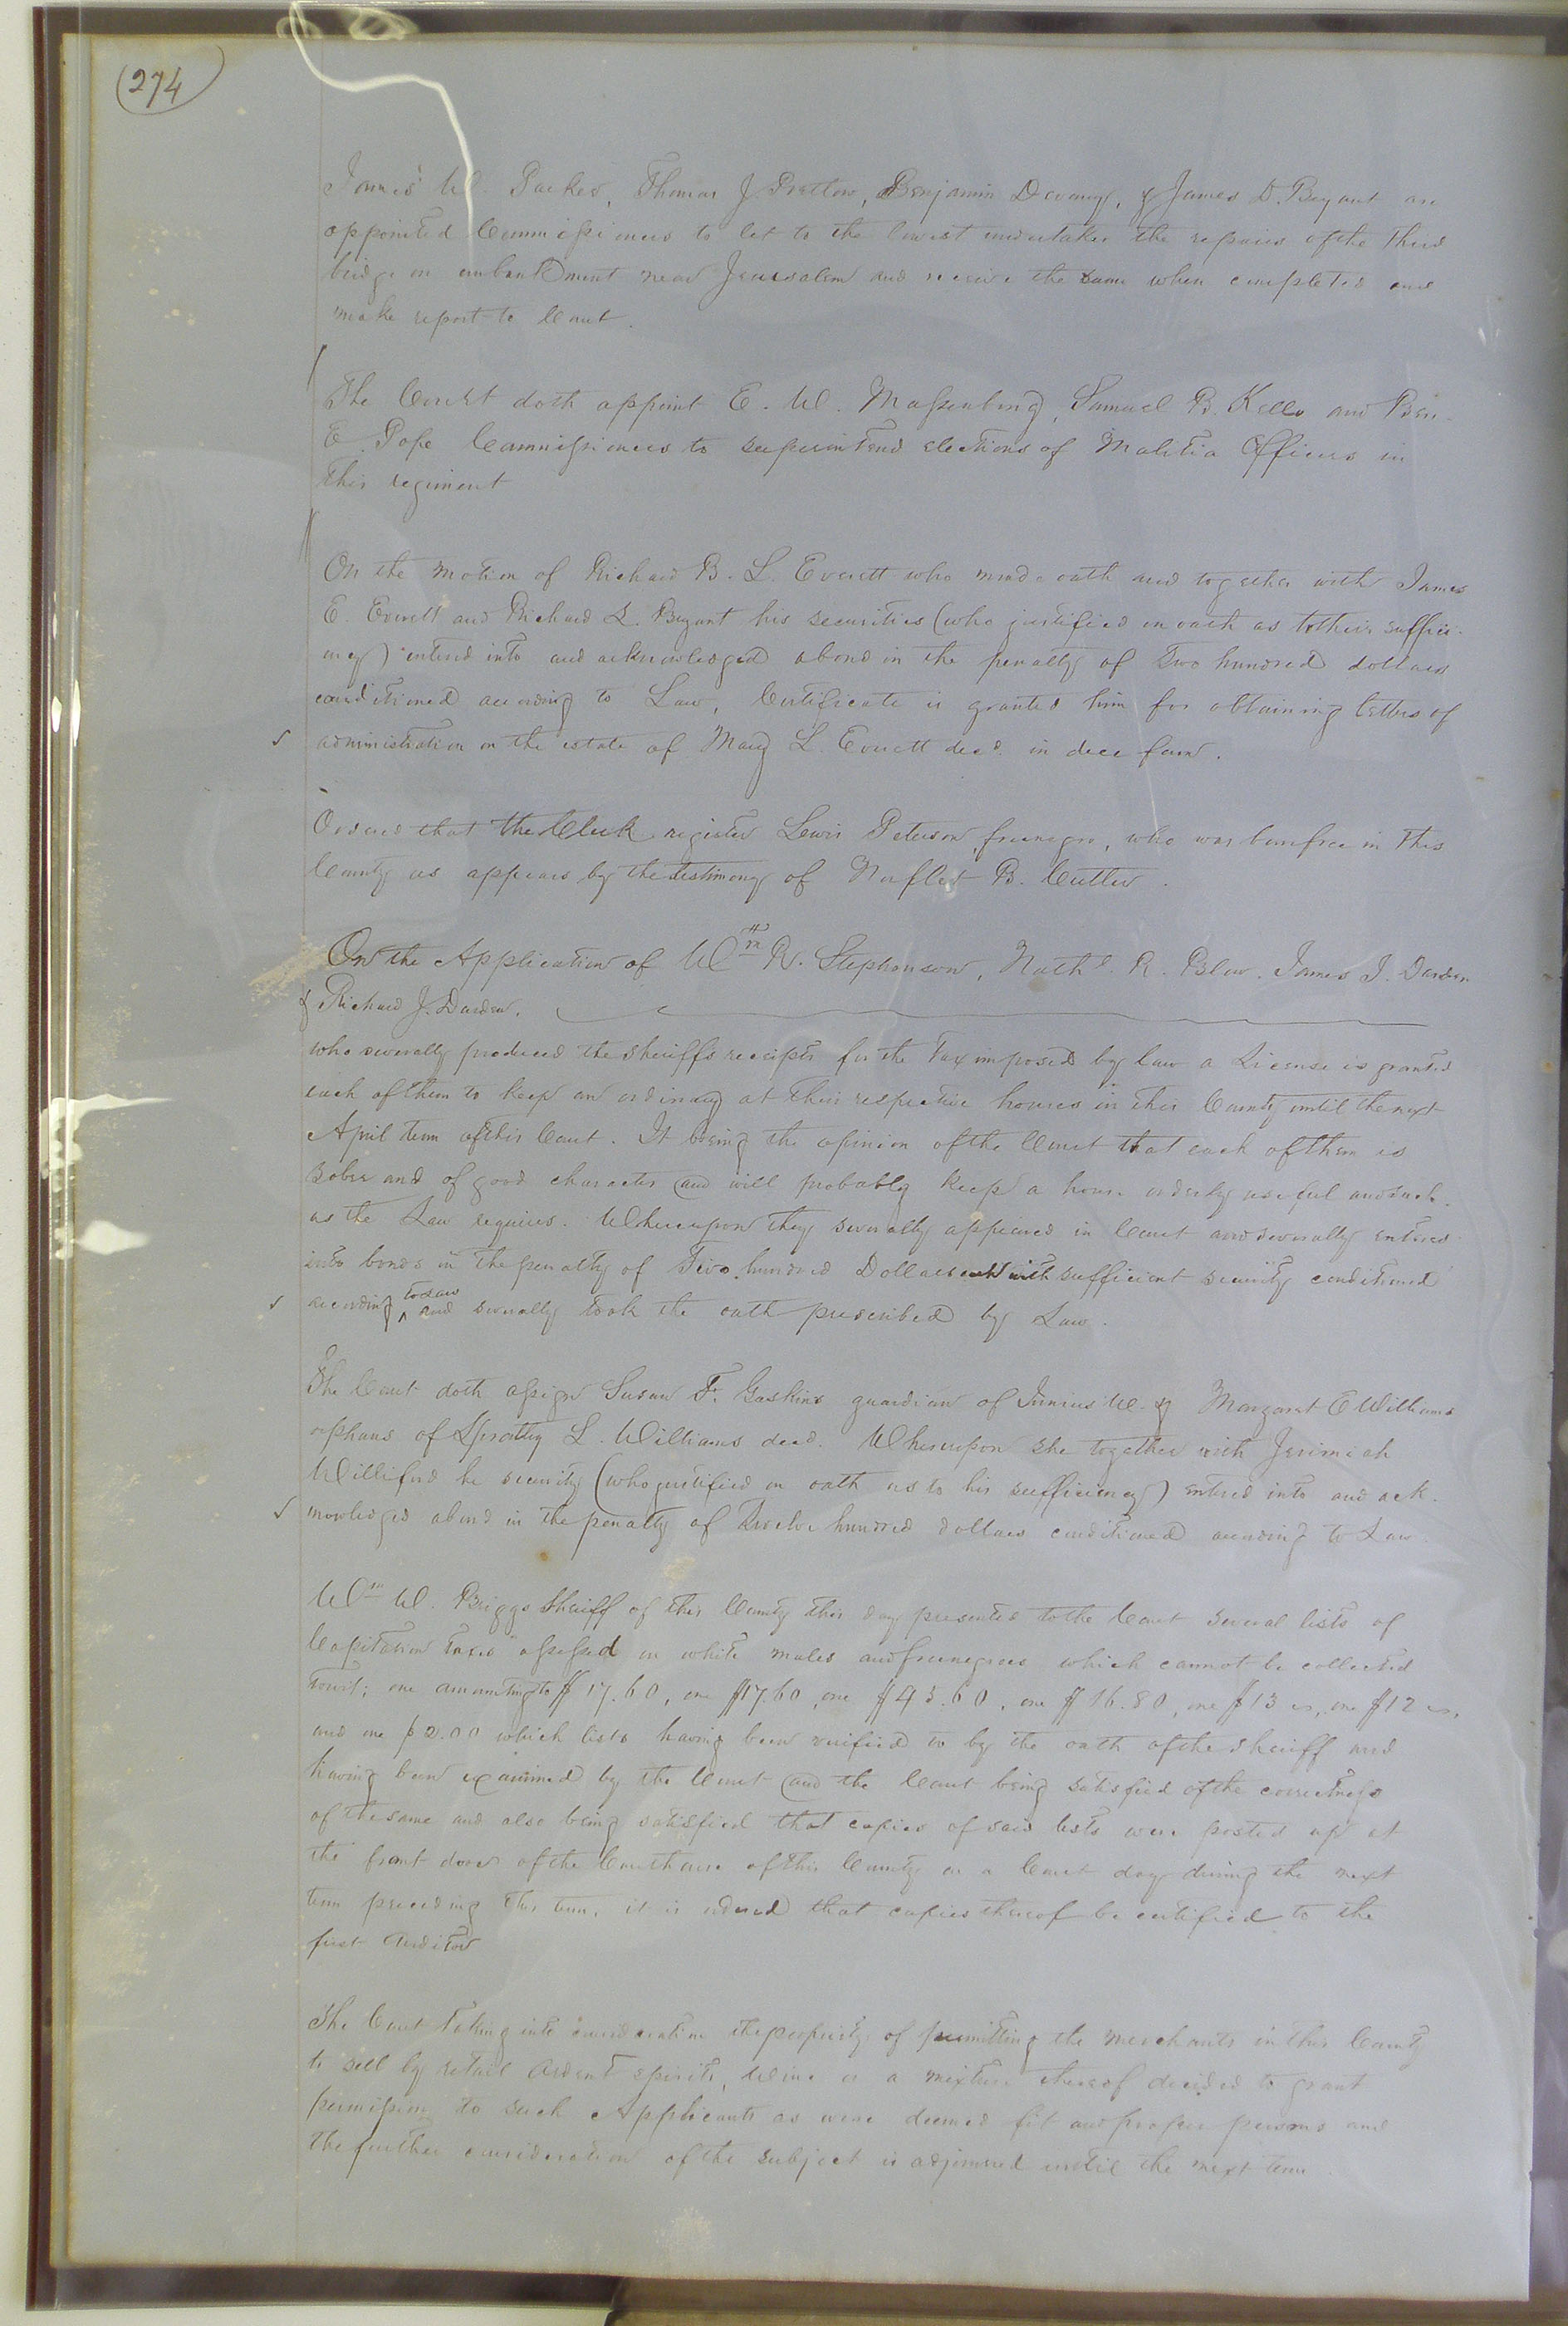 (274)
James W. Parker, Thomas J. Pretlow, Benjamin Devany, & James D. Bryant are
appointed Commissioners to let to the lowest undertaker the repairs of the third
bridge on embankment near Jerusalem and receive the same when completed and
make report to Court.
The Court doth appoint E. W. Massenburg, Samuel B. Kello and Ben.
E. Pope Commissioners to superintend elections of Malitia Officers in
this regiment
On the motion of Richard B. L. Everett who made oath and together with James
E. Everett and Richard L. Bryant his securities (who justified on oath as to their suffici-
ency) entered into and acknowledged a bond in the penalty of Two hundred dollars
conditioned according to Law, Certificate is granted him for obtaining letters of
administration on the estate of Mary L. Everett decd. in due form.
Ordered that the Clerk register Lewis Peterson, free negro, who was born free in this
County as appears by the testimony of Norflet B. Cutler.
On the Application of Wm. R. Stephenson, Nathl. R. Blow. James J. Darden
& Richard J. Darden.
who severally produced the sheriffs receipts for the tax imposed by law a License is granted
each of them to keep an ordinary at their respective houses in this County until the next
April term of this Court. It being the opinion of the Court that each of them is
sober and of good character and will probably keep a house orderly useful and such
as the Law requires. Whereupon they severally appeared in Court and severally entered
into bonds in the penalty of Two hundred Dollars each with sufficient security conditioned
according to Law and severally took the oath prescribed by Law.
The Court doth assign Susan F. Gaskins guardian of Junius W. & Margaret E Williams
orphans of Spratley L. Williams decd. Whereupon she together with Jerimiah
Williford he security (who justified on oath as to his sufficiency) entered into and ack-
nowledged a bond in the penalty of Twelve hundred dollars conditioned according to Law
Wm. W. Briggs Sheriff of this County this day presented to the Court several lists of
Capitation taxes assessed on white males and free negroes which cannot be collected
towit; one amounting to $17.60, one $17.60, one $45.60, one $16.80, one $13 , one $12 ,
and one $2.00 which lists having been verified to by the oath of the sheriff and
having been examined by the Court and the Court being satisfied of the correctness
of the same and also being satisfied that copies of said lists were posted up at
the front door of the Courthouse of this County on a Court day during the next
term preceding this term, it is ordered that copies thereof be certified to the
first Auditor
The Court taking into consideration the propriety of permitting the merchants in this County
to sell by retail Ardent spirits, Wine or a mixture thereof decided to grant
permission to such Applicants as were deemed fit and proper persons and
the further consideration of the subject is adjourned until the next term.